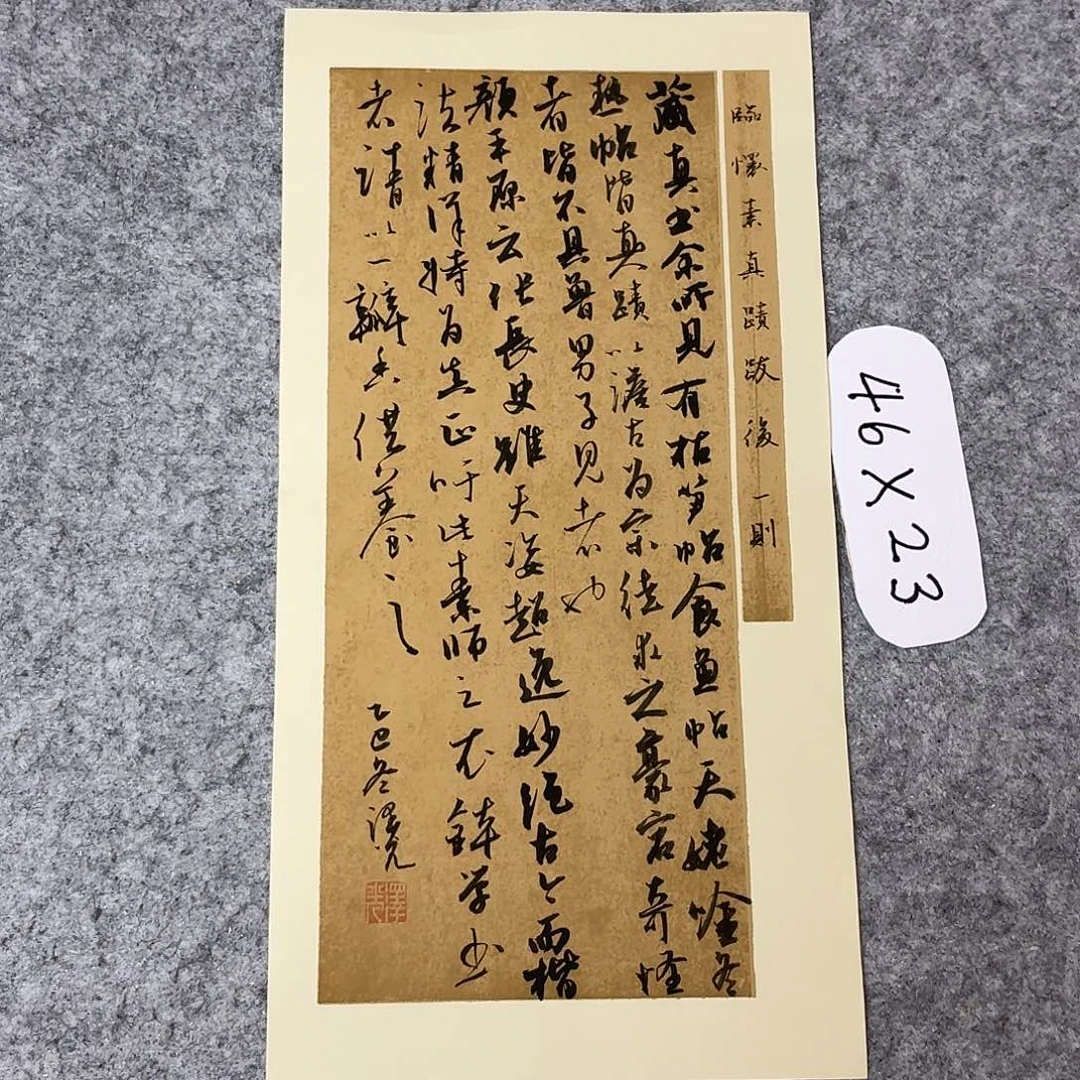 臨懷素真蹟跋後一則
藏真書余所見有枯筍帖食魚帖天姥吟冬
熱帖皆真蹟以澹古為宗徒求之豪宕奇怪
者皆不具魯男子見者也
顏平原云張長史雖天姿超逸妙絕古今而楷
法精詳特為真正吁此素師之衣鉢學書
者請以一瓣香供養之
乙巳冬澤
46X23